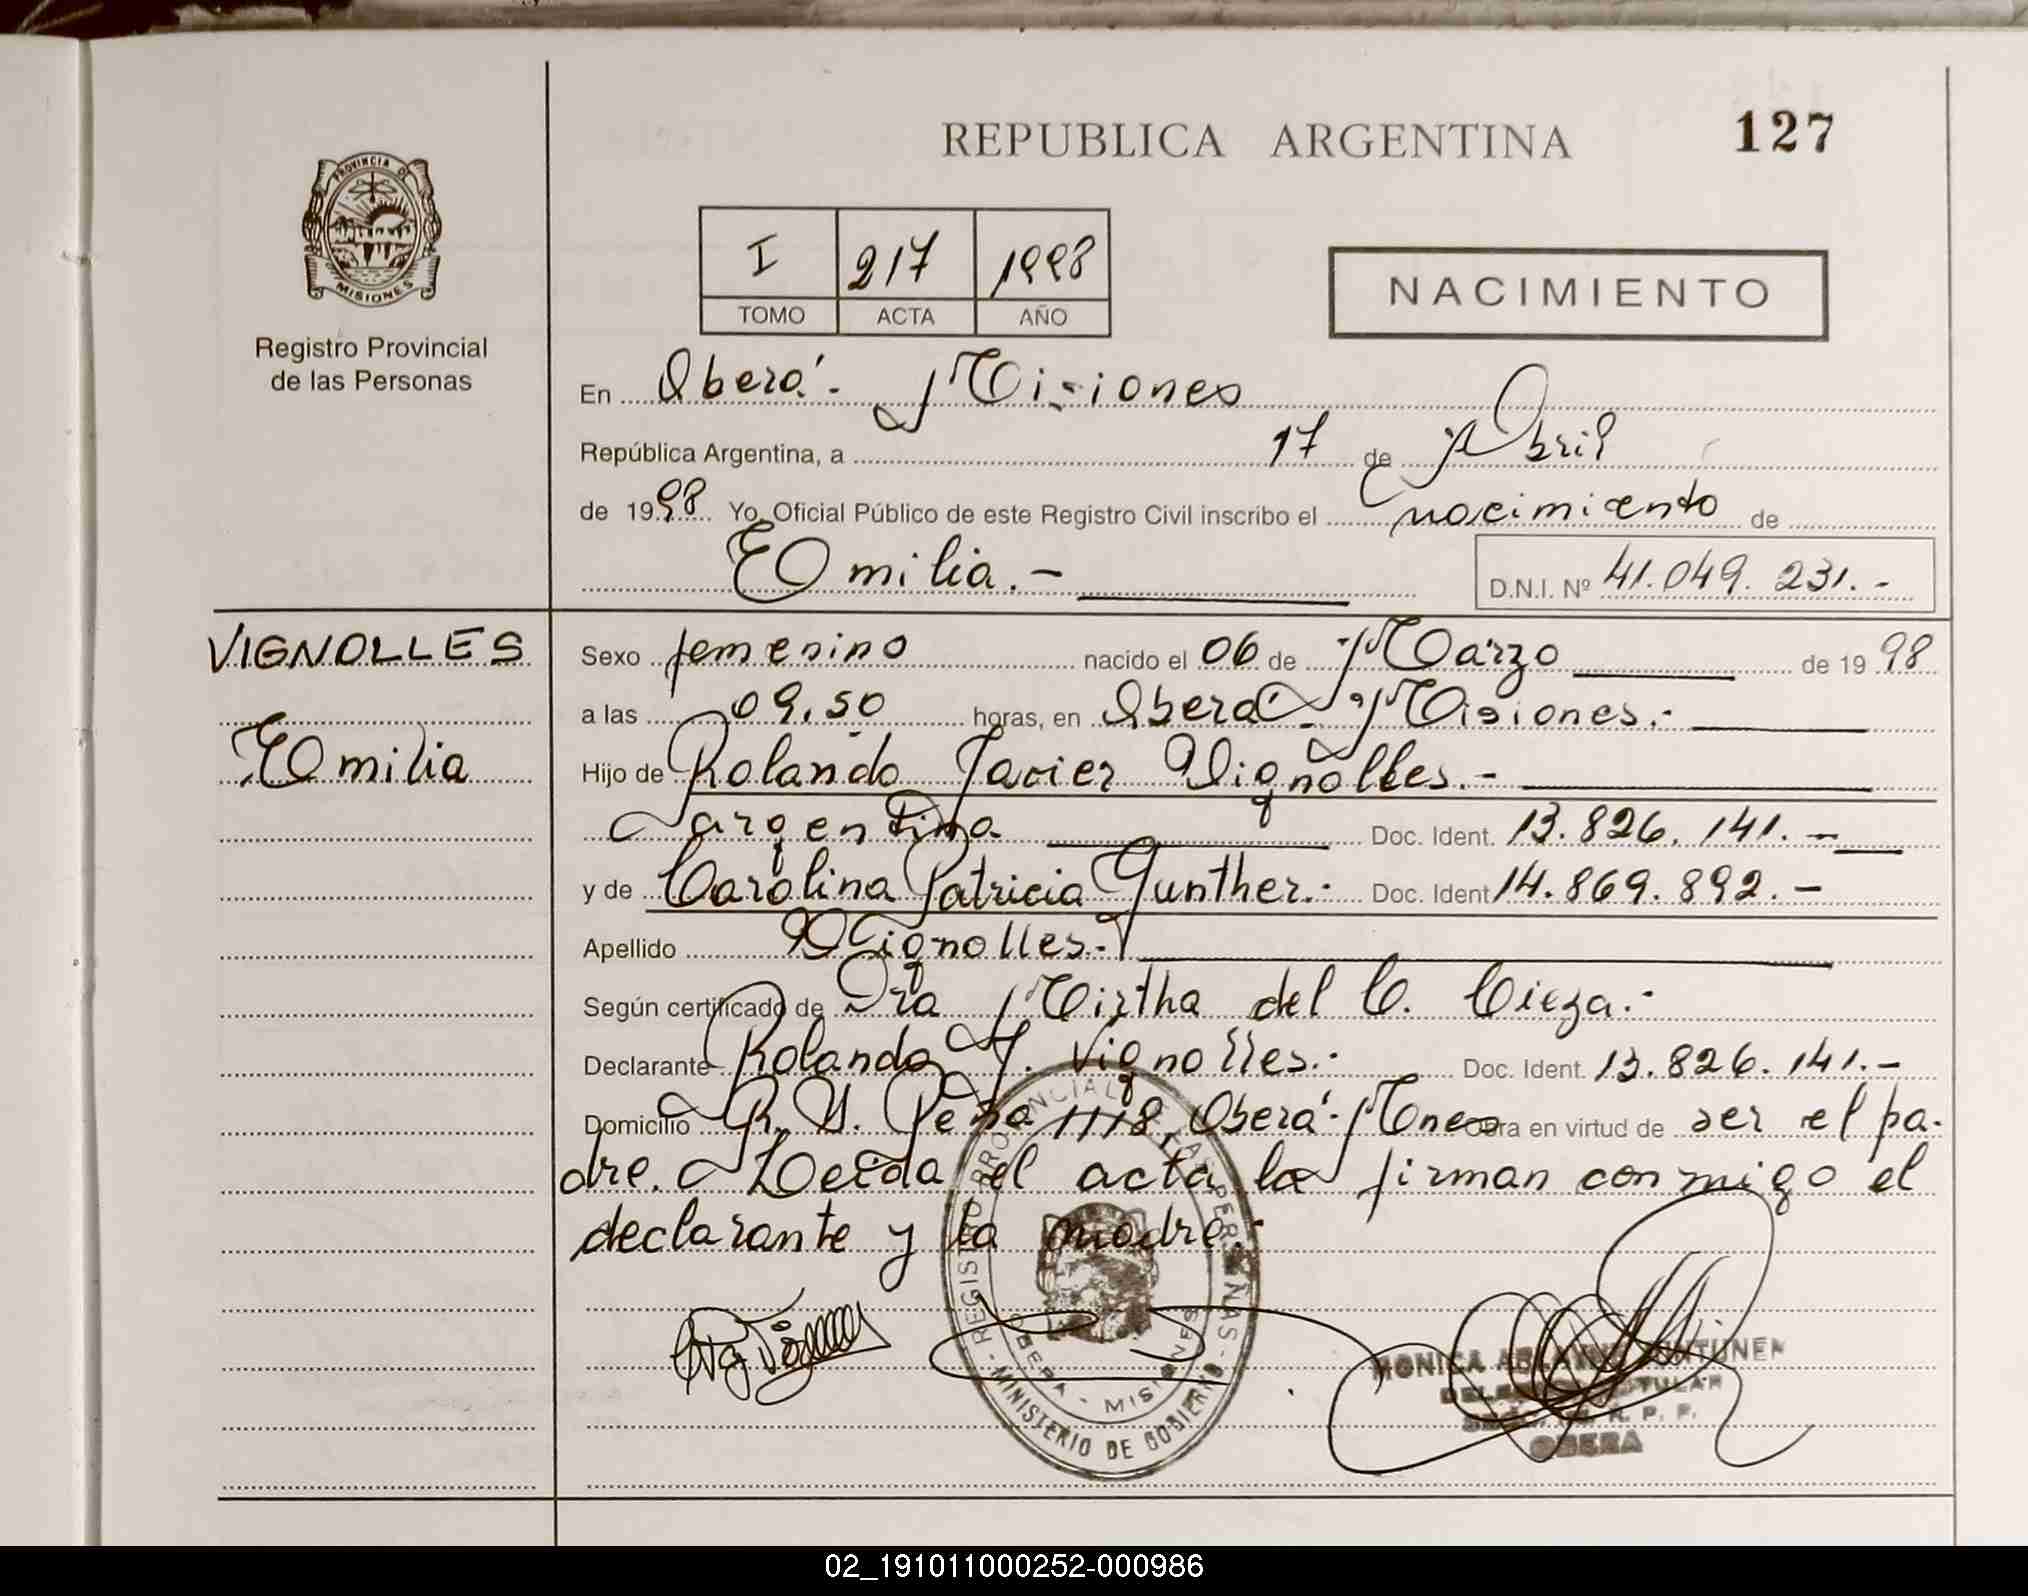 REPUBLICA ARGENTINA
127
PROVINCIA DE
MISIONES
Registro Provincial
de las Personas
I 217 1998
TOMO ACTA AÑO
NACIMIENTO
En Oberá.- Misiones
República Argentina, a 17 de Abril
de 1998 Yo, Oficial Público de este Registro Civil inscribo el nacimiento de
Emilia.-
D.N.I. Nº 41.049.231.-
VIGNOLLES
Emilia
Sexo femenino nacido el 06 de Marzo de 1998
a las 09.50 horas, en Oberá - Misiones.-
Hijo de Rolando Javier Vignolles.-
argentino Doc. Ident. 13.826.141.-
y de Carolina Patricia Gunther.- Doc. Ident 14.869.892.-
Apellido Vignolles.-
Según certificado de Dra Mirtha del C. Cieza.-
Declarante Rolando J. Vignolles.- Doc. Ident. 13.826.141.-
Domicilio R. S. Peña 1118, Oberá-Mnes Obra en virtud de ser el pa-
dre. Leída el acta la firman conmigo el
declarante y la madre.-
REGISTRO PROVINCIAL DE LAS PERSONAS - MINISTERIO DE GOBIERNO
OBERA - MISIONES
MONICA
R. P. P.
OBERA
02_191011000252-000986